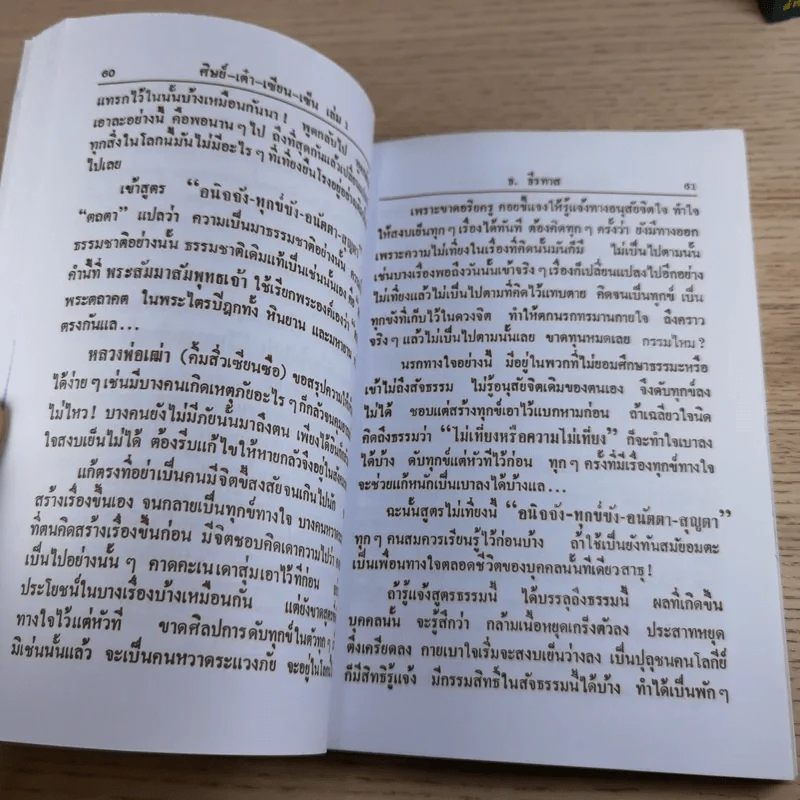 ๖๐ ศิษย์-เต๋า-เซียน-เซ็น เล่ม ๑
แทรกไว้ในนั้นบ้างเหมือนกันนา! พูดกลับไป
เอาละอย่างนี้ คือพอนานๆไป ถึงที่สุดกันแล้ว
ทุกสิ่งในโลกนี้มันไม่มีอะไรๆที่เที่ยงยืนโรงอยู่อย่าง
ไปเลย
เข้าสูตร “อนิจจัง-ทุกข์ขัง-อนัตตา-สุญตา”
“ตถตา” แปลว่า ความเป็นมาธรรมชาติอย่างนั้น
ธรรมชาติอย่างนั้น ธรรมชาติเดิมแท้เป็นเช่นนั้นเอง
คำนี้ที่ พระสัมมาสัมพุทธเจ้า ใช้เรียกพระองค์เองว่า
พระตถาคต ในพระไตรปิฎกทั้ง หินยาน และมหายาน
ตรงกันแล...
หลวงพ่อเฒ่า (คิ้มสิ่วเซียนซือ) ขอสรุปความให้
ได้ง่ายๆเช่นมีบางคนเกิดเหตุภัยอะไรๆก็กลัวจน
ไม่ไหว! บางคนยังไม่มีภัยนั้นมาถึงตน เพียงได้ยิน
ใจสงบเย็นไม่ได้ ต้องรีบแก้ไขให้หายกลัวจึงอยู่ใน
แก้ตรงที่อย่าเป็นคนมีจิตขี้สงสัยจนเกินไปนัก
สร้างเรื่องขึ้นเอง จนกลายเป็นทุกข์ทางใจ บางคน
ที่ตนคิดสร้างเรื่องขึ้นก่อน มีจิตชอบคิดเดาความไปว่า
เป็นไปอย่างนั้นๆ คาดคะเนเดาสุ่มเอาไว้ที่ก่อน
ประโยชน์ในบางเรื่องบ้างเหมือนกัน แต่ยังขาด
ทางใจไว้แต่หัวที ขาดศิลปการดับทุกข์ในตัวทุกๆ
มิเช่นนั้นแล้ว จะเป็นคนหวาดระแวงภัย จะอยู่ในโลก
ธ. ธีรทาส ๖๑
เพราะขาดอริยครู คอยชี้แจงให้รู้แจ้งทางอนุสัยจิตใจ ทำใจ
ให้สงบเย็นทุกๆเรื่องได้ทันที ต้องคิดทุกๆ ครั้งว่า ยังมีทางออก
เพราะความไม่เที่ยงในเรื่องที่คิดนั้นมันก็มี ไม่เป็นไปตามนั้น
เช่นบางเรื่องพอถึงวันนั้นเข้าจริงๆเรื่องก็เปลี่ยนแปลงไปอีกอย่าง
ไม่เที่ยงแล้วไม่เป็นไปตามที่คิดไว้แทบตาย คิดจนเป็นทุกข์ เป็น
ทุกข์ขังที่เก็บไว้ในดวงจิต ทำให้ตกนรกทรมานกายใจ ถึงคราว
จริงๆ แล้วไม่เป็นไปตามนั้นเลย ขาดทุนหมดเลย กรรมไหม?
นรกทางใจอย่างนี้ มีอยู่ในพวกที่ไม่ยอมศึกษาธรรมะหรือ
เข้าไม่ถึงสัจธรรม ไม่รู้อนุสัยจิตเดิมของตนเอง จึงดับทุกข์ลง
ไม่ได้ ชอบแต่สร้างทุกข์เอาไว้แบกหามก่อน ถ้าเฉลียวใจนิด
คิดถึงธรรมว่า “ไม่เที่ยงหรือความไม่เที่ยง” ก็จะทำใจเบาลง
ได้บ้าง ดับทุกข์แต่หัวทีไว้ก่อน ทุกๆ ครั้งที่มีเรื่องทุกข์ทางใจ
จะช่วยแก้หนักเป็นเบาลงได้บ้างแล...
ฉะนั้นสูตรไม่เที่ยงนี้ “อนิจจัง-ทุกข์ขัง-อนัตตา-สุญตา”
ทุกๆคนสมควรเรียนรู้ไว้ก่อนบ้าง ถ้าใช้เป็นยังทันสมัยอมตะ
เป็นเพื่อนทางใจตลอดชีวิตของบุคคลนั้นทีเดียวสาธุ!
ถ้ารู้แจ้งสูตรธรรมนี้ ได้บรรลุถึงธรรมนี้ ผลที่เกิดขึ้น
บุคคลนั้น จะรู้สึกว่า กล้ามเนื้อหยุดเกร็งตัวลง ประสาทหยุด
ตึงเครียดลง กายเบาใจเริ่มจะสงบเย็นว่างลง เป็นปุถุชนคนโลกีย์
ก็มีสิทธิรู้แจ้ง มีกรรมสิทธิ์ในสัจธรรมนี้ได้บ้าง ทำได้เป็นพักๆ